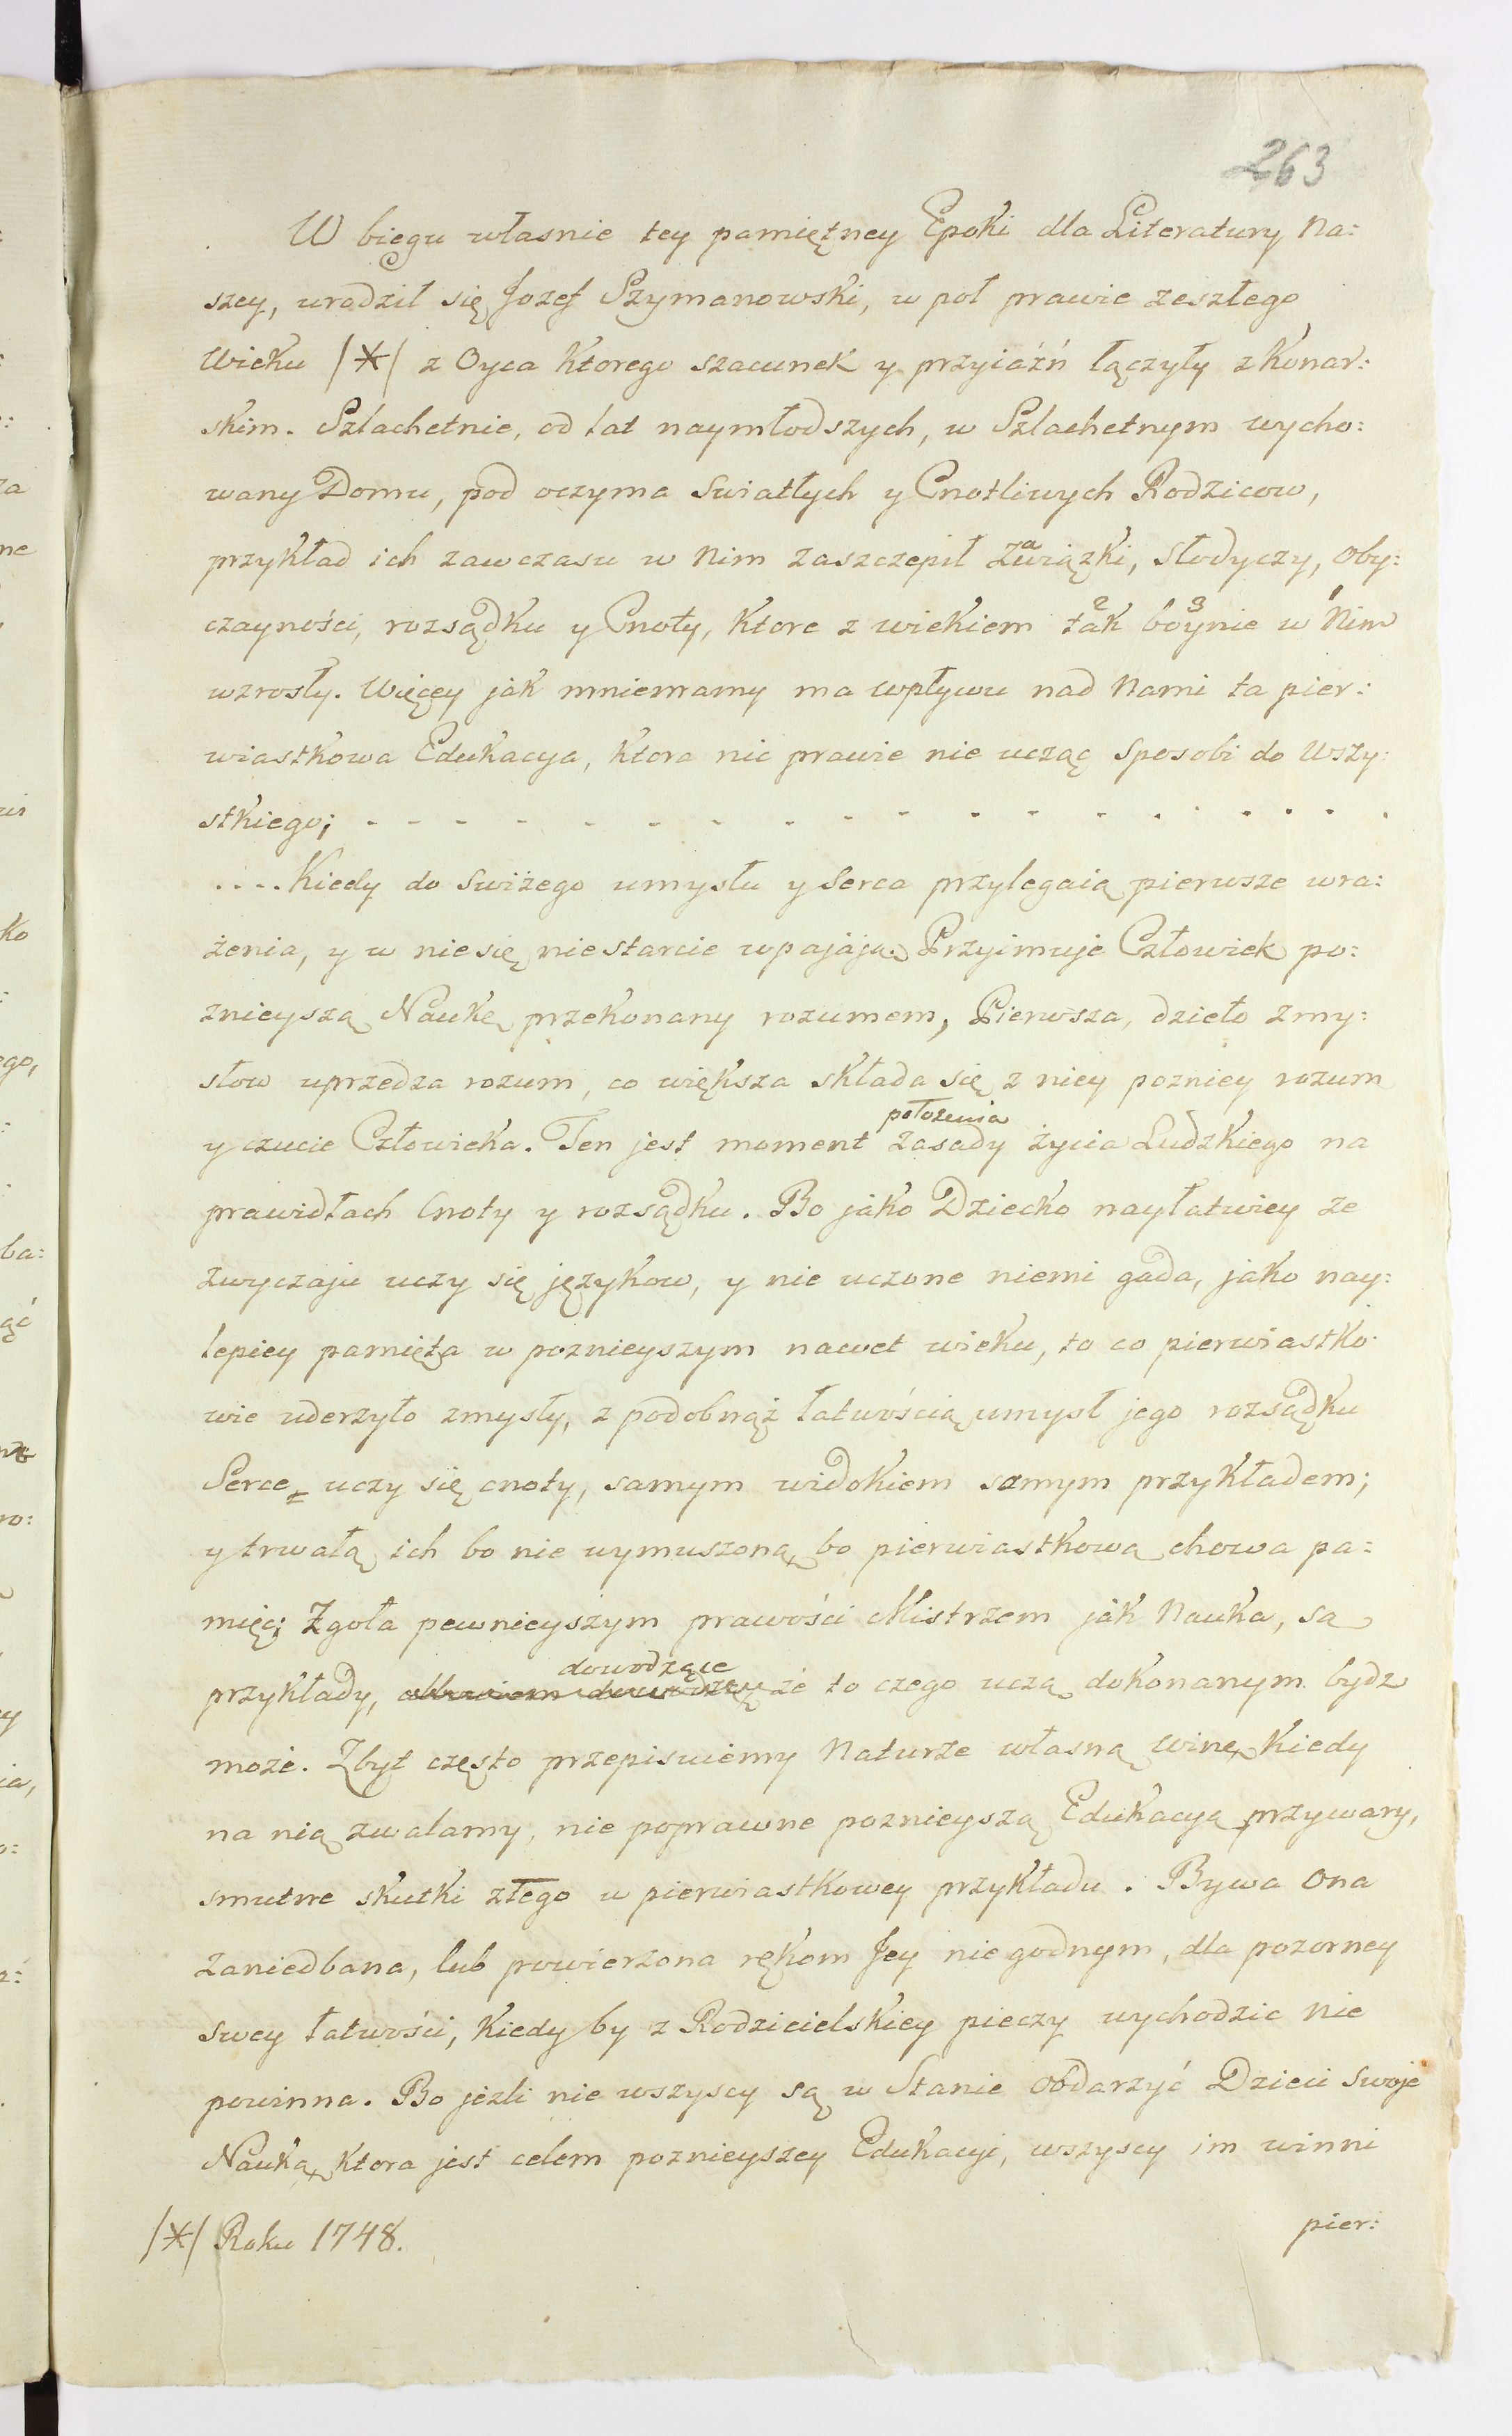 263
W biegu własnie tey pamiętney Epoki dla Literatury Na:
szey, urodził się Jozef Szymanowski, w poł prawie zeszłego
Wieku /*/ z Oyca Ktorego szacunek y przyiáźń łączyły z Konar:
skim. Szlachetnie, od lat naymłodszych, w Szlachetnym wycho:
wany Domu, pod oczyma Swiatłych y Cnotliwych Rodzicow,
przykład ich zawczasu w Nim zaszczepił Zawiązki, Słodyczy, Oby:
czayności, rozsądku y Cnoty, Ktore z wiekiem tak boynie w Nim
2 3 1
wzrosły. Więcey jak mniemamy ma wpływu nad Nami ta pier:
wiastkowa Edukacya, Ktora nic prawie nie ucząc Sposobi do Wszy:
stkiego; - - - - - - - - - - - - - - - - -
.... Kiedy do Swiżego umysłu y Serca przylegaią pierwsze wra:
żenia, y w nie się niestarcie wpajają. Przyimuje Człowiek po:
znieyszą Naukę przekonany rozumem, Pierwsza, dzieło Zmy:
słow uprzedza rozum, co większa składa się z niey pozniey rozum
położenia
y czucie Człowieka. Ten jest moment zasady życia Ludzkiego na
prawidłach Cnoty y rozsądku. Bo jako Dziecko nayłatwiey ze
Zwyczaju uczy się językow, y nie uczone niemi gada, jako nay:
lepiey pamięta w poznieyszym nawet wieku, to co pierwiastko:
wie uderzyło zmysły, z podobnąż łatwością umysł jego rozsądku
Serce = uczy się cnoty, samym widokiem samym przykładem;
y trwałą ich bo nie wymuszoną, bo pierwiastkową chowa pa:
mięć; Zgoła pewnieyszym prawości Mistrzem jak Nauka, są
dowodzące
przykłady, że to czego uczą dokonanym bydz
może. Zbyt często przepisuiemy Naturze własną winę, Kiedy
na nią zwalamy, nie poprawne poznieyszą Edukacyą przywary,
smutne skutki złego w pierwiastkowey przykładu. Bywa Ona
Zaniedbana, lub powierzona rękom Jey niegodnym, dla pozorney
swey łatwości, Kiedy by z Rodzicielskiey pieczy wychodzic Nie
powinna. Bo jezli nie wszyscy są w Stanie obdarzyć Dzieci Swoje
Nauką, Ktora jest celem poznieyszey Edukacyi, wszyscy im winni
pier:
/*/ Roku 1748.